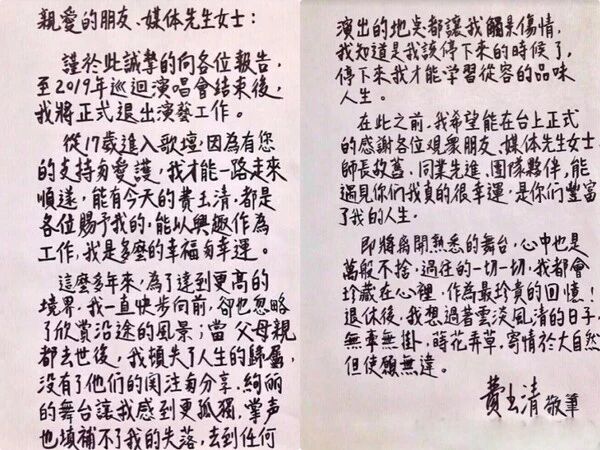 親愛的朋友、媒体先生女士：
謹於此誠摯的向各位報告，
至2019年巡迴演唱會結束後，
我將正式退出演藝工作。
從17歲進入歌壇，因為有您
的支持與愛護，我才能一路走來
順遂，能有今天的費玉清，都是
各位賜予我的，能以興趣作為
工作，我是多麼的幸福與幸運。
這麼多年來，為了達到更高的
境界，我一直快步向前，卻也忽略
了欣賞沿途的風景；當父母親
都去世後，我頓失了人生的歸屬，
沒有了他們的関注與分享，絢麗
的舞台讓我感到更孤獨，掌声
也填補不了我的失落，去到任何
演出的地点都讓我觸景傷情，
我知道是我該停下來的時候了，
停下來我才能学習從容的品味
人生。
在此之前，我希望能在台上正式
的感谢各位观衆朋友、媒体先生女士、
師長故舊、同業先進、团隊夥伴，能
遇見你们我真的很幸運，是你们豐富
了我的人生。
即將离開熟悉的舞台，心中也是
萬般不捨，過往的一切一切，我都會
珍藏在心裡，作為最珍貴的回憶！
退休後，我想過著雲淡風清的日子，
無牽無掛，蒔花弄草，寄情於大自然
但使願無違。
費玉清 敬筆